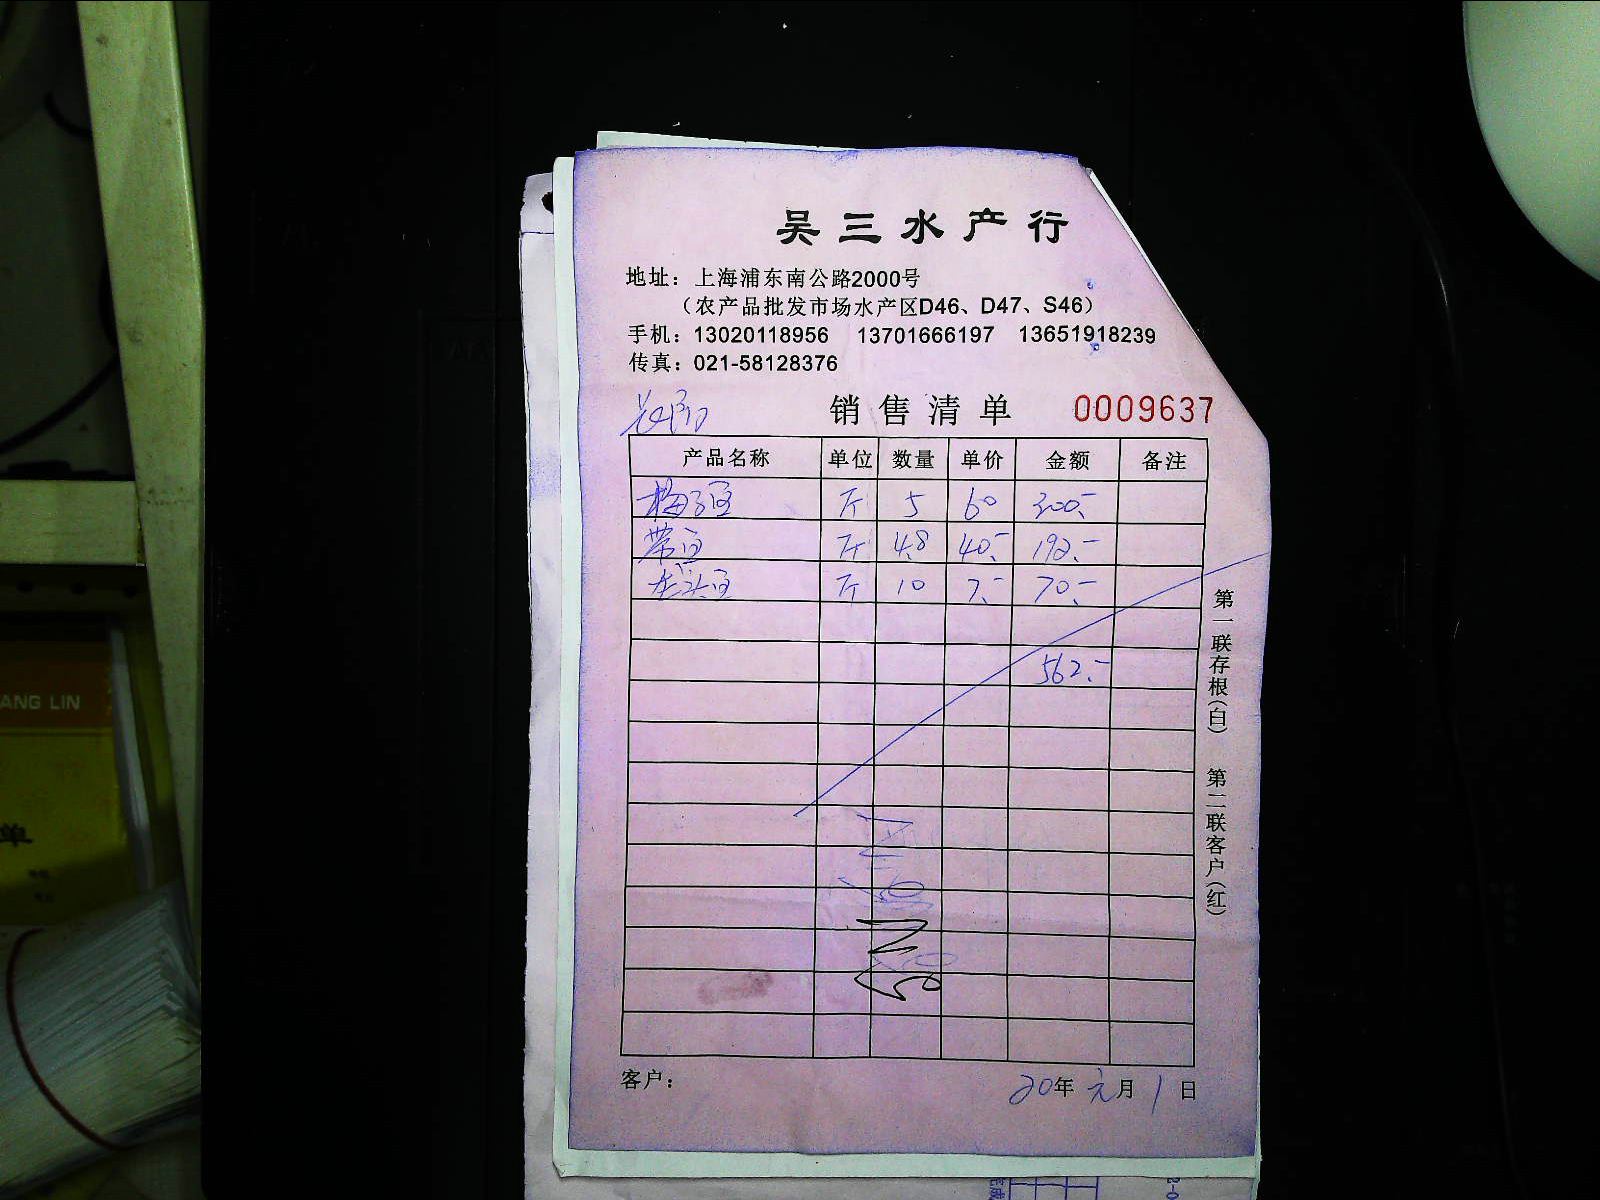 吴三水产行
地址：上海浦东南公路2000号
（农产品批发市场水产区D46、D47、S46）
手机：13020118956 13701666197 13651918239
传真：021-58128376
销售清单 0009637
产品名称 单位 数量 单价 金额 备注
梅子鱼 斤 5 60 300.-
带鱼 斤 4.8 40.- 192.-
龙头鱼 斤 10 7.- 70.-
562.-
第一联存根（白） 第二联客户（红）
客户： 20年元月1日
ANG LIN
单